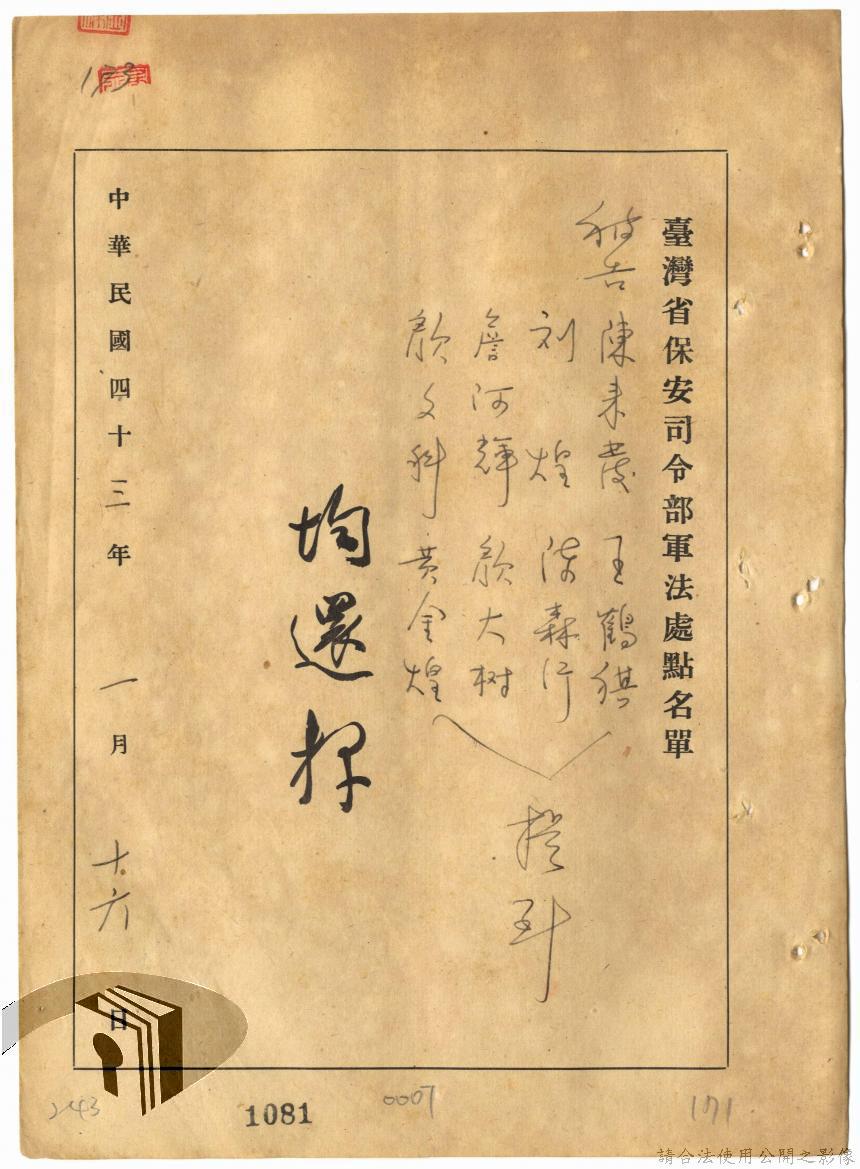 臺灣省保安司令部軍法處點名單
被告 陳来茂 王鶴祺
刘煌 陳森行
詹阿輝 顏大树
顏文科 黃金煌
提到
均還押
中華民國四十三年一月十六日
173
243
1081
0007
171
請合法使用公開之影像